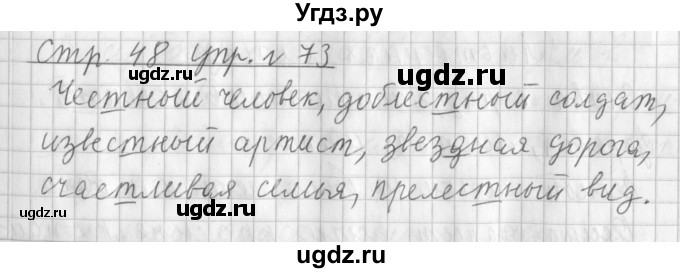 Угдз.ру
Стр. 48 упр. № 73
ugdz.ru ugdz.ru
Честный человек, доблестный солдат,
известный артист, звездная дорога,
ugdz.ru ugdz.ru
счастливая семья, прелестный вид.
ugdz.ru ugdz.ru
ugdz.ru